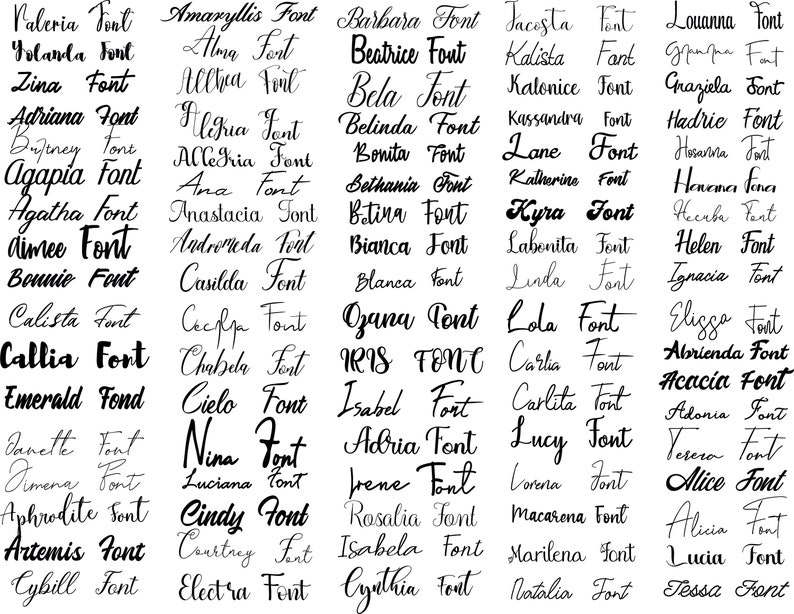 Valeria Font
Yolanda Font
Zina Font
Adriana Font
Britney Font
Agapia Font
Agatha Font
Aimee Font
Bonnie Font
Calista Font
Callia Font
Emerald Fond
Janette Font
Jimena Font
Aphrodite Font
Artemis Font
Cybill Font
Amaryllis Font
Alma Font
Allthea Font
Alegria Font
Allegria Font
Ana Font
Anastacia Font
Andromeda Font
Casilda Font
Font
Chabela Font
Cielo Font
Nina Font
Luciana Font
Cindy Font
Courtney Font
Electra Font
Barbara Font
Beatrice Font
Bela Font
Belinda Font
Bonita Font
Bethania Font
Betina Font
Bianca Font
Blanca Font
Ozana Font
IRIS FONT
Isabel Font
Adria Font
Irene Font
Rosalia Font
Isabela Font
Cynthia Font
Jacosta Font
Kalista Font
Kalonice Font
Kassandra Font
Lane Font
Katherine Font
Kyra Font
Labonita Font
Linda Font
Lola Font
Carlia Font
Carlita Font
Lucy Font
Lorena Font
Macarena Font
Marilena Font
Natalia Font
Louanna Font
Font
Graziela Font
Hadrie Font
Hosanna Font
Havana Font
Hecuba Font
Helen Font
Ignacia Font
Elissa Font
Abrienda Font
Acacia Font
Adonia Font
Tereza Font
Alice Font
Alicia Font
Lucia Font
Tessa Font